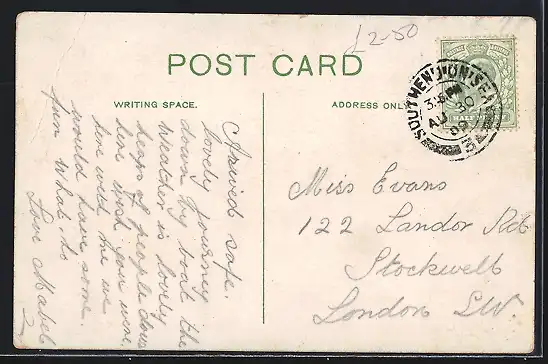 £2-50
POST CARD
WRITING SPACE.
ADDRESS ONLY
SOUTHEND-ON-SEA
3.
PM
AU 30
09
HALF
Arrived safe.
lovely journey
down by boat the
weather is lovely
heaps of people down
here wish you were
here with me we
would have some
fun what. Lo
Love Mabel
Miss Evans
122 Landor Rd
Stockwell
London S.W.